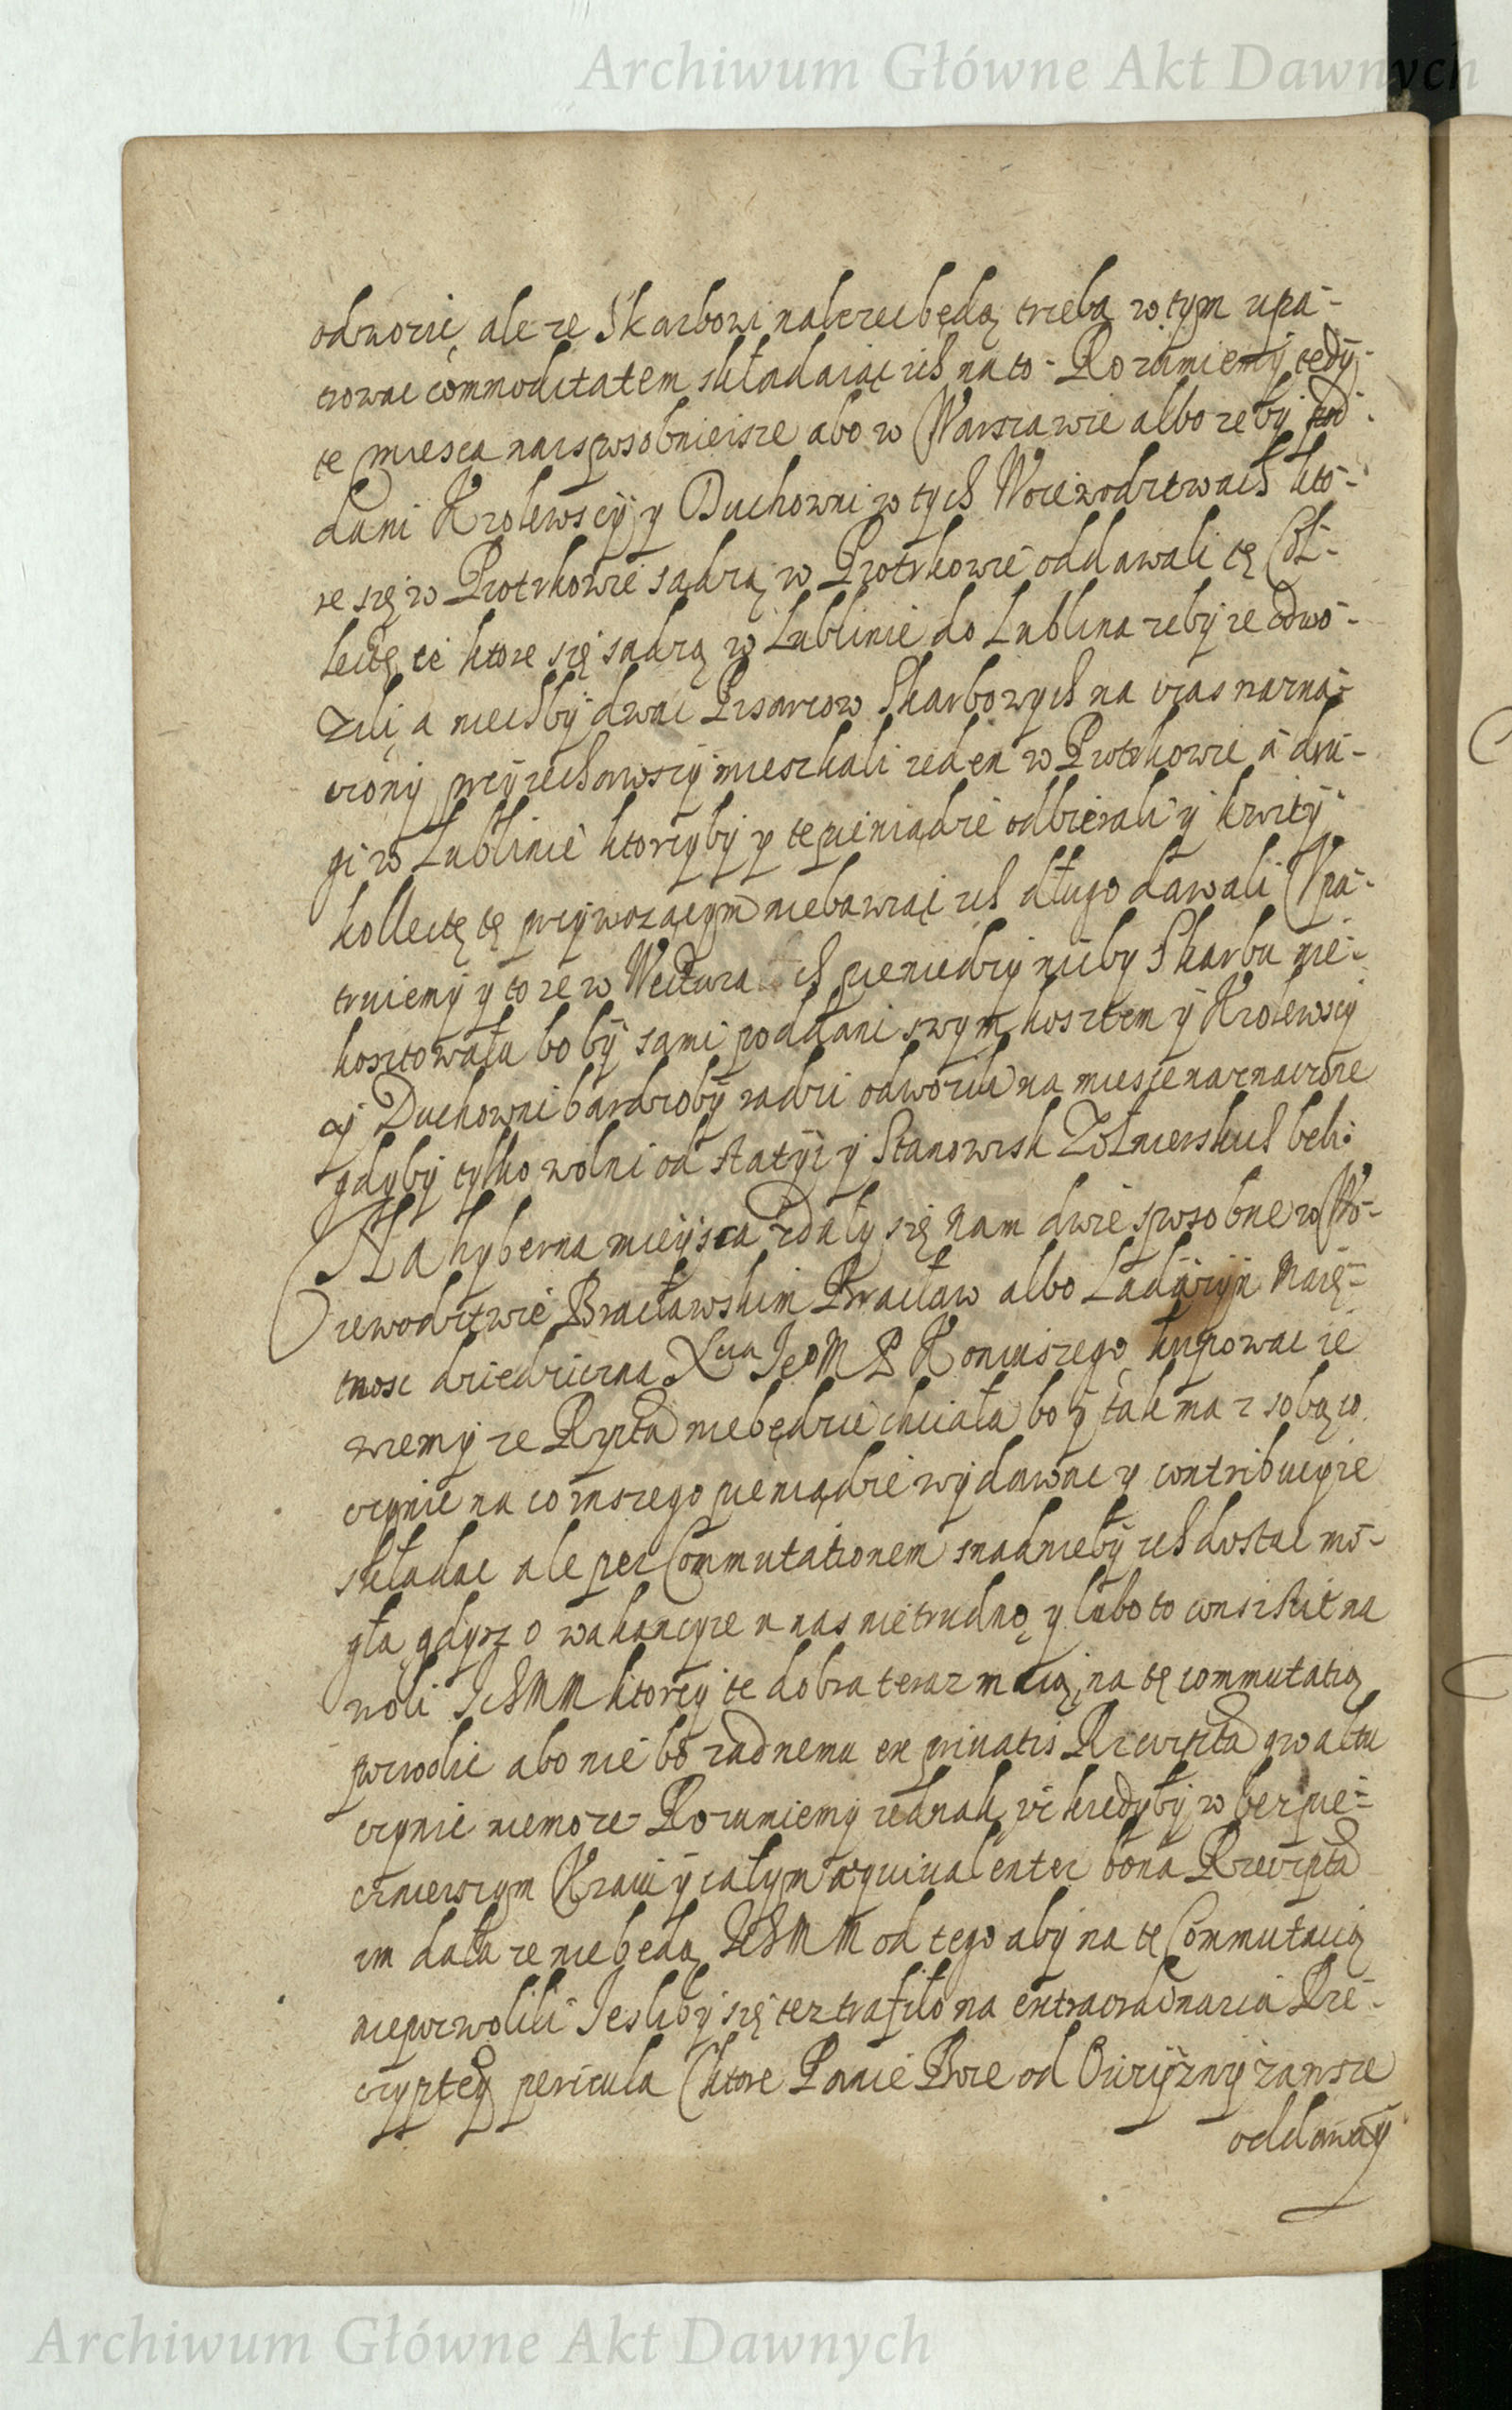 Archiwum Główne Akt Dawnych
odwozić, ale ze Skarbowi należeć będą trzeba w tym upa-
trować commoditatem składaiąc ich na to - Rozumiemy tedy
te miesca naisposobnieisze abo w Warszawie albo zeby pod-
dani Krolewscy y Duchowni w tych Woiewodztwach kto-
re się w Piotrkowie sądzą w Piotrkowie oddawali tę Col-
lectę te ktore się sądzą w Lublinie do Lublina zeby ie odwo-
zili, a niechby dwai Pisarzow Skarbowych na czas nazna-
czony przyiechawszy mieszkali ieden w Piotrkowie a dru-
gi w Lublinie ktorzyby y te pieniądze odbierali y kwity
kollectę tę przywozącym niebawiąc ich długo dawali Upa-
truiemy y to ze w Wectura ich pieniedzy nicby Skarbu nie
kosztowała bo by sami poddani swym kosztem y Krolewscy
y Duchowni bardzoby radzi odwozili na miesce naznaczone
gdyby tylko wolni od statyi y Stanowisk Zołnierskich beli.
Na hyberna mieysca zdały się nam dwie sposobne w Wo-
iewodztwie Bracławskim Bracław albo Ladazyn Maię-
tnosc dziedziczna Xcia Je°M P Koniuszego, kupowac ie
wiemy ze Rzpta niebędzie chciała bo y tak ma z sobą co
czynic na co inszego pieniądze wydawac y contribucyie
składac ale per Commutationem snadnieby ich dostac mo-
gła, gdysz o wakancyie u nas nietrudno, y lubo to consistit na
woli IchMM ktorzy te dobra teraz maią, na tę commutatią
pozwolic abo nie bo zadnemu ex priuatis Rzeczpta gwałtu
czynic niemoze - Rozumiemy iednak ze kiedyby w bezpie-
cznieiszym Kraiu y całym æquiualenter bona Rzeczpta
im dała ze niebędą IchMM od tego aby na tę Commutacią
niepozwolili Iesliby się tez trafiło na extraordinaria Rze-
czyptey pericula (ktore Panie Boze od Oiczyzny zawsze
oddaway
Archiwum Główne Akt Dawnych